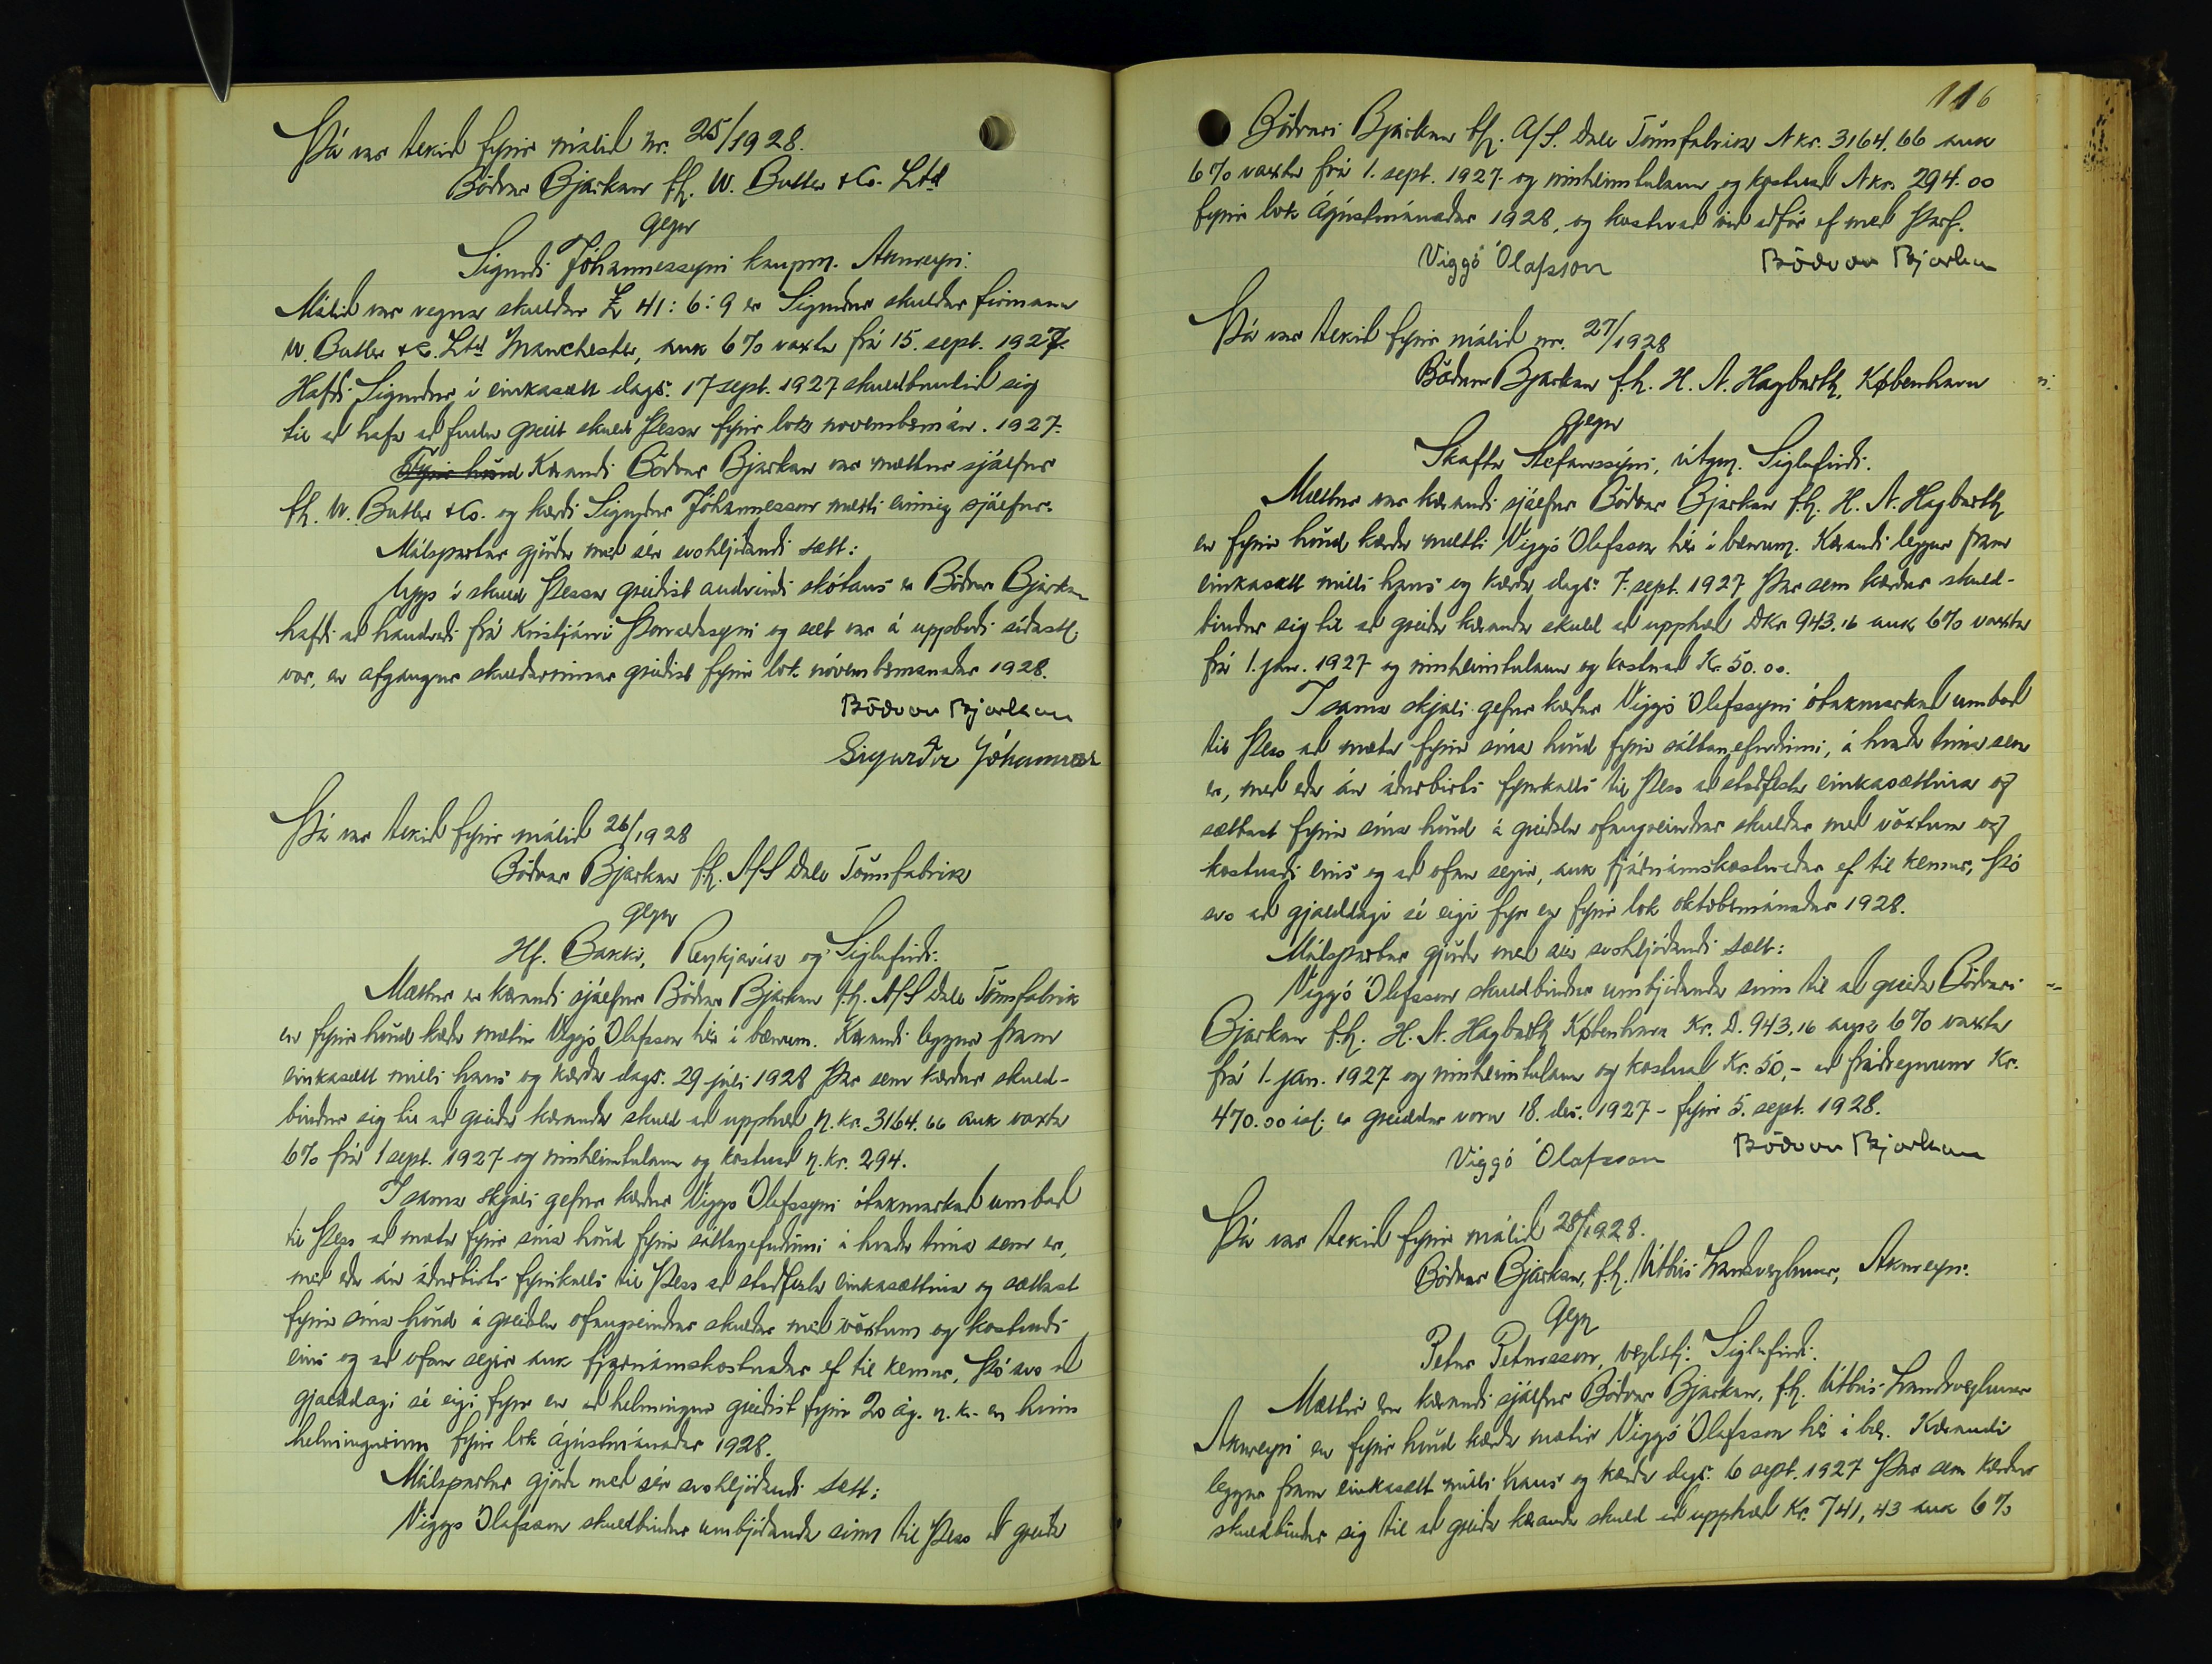 Þá var tekið fyrir málið nr. 25/1928.
Böðvar Bjarkan fh. W. Butler & Co. Ltd
gegn
Sigurði Jóhannessyni kaupm. Akureyri.
Málið var vegna skuldar £ 41:6:9 er Sigurður skuldar firmanu
W. Butler & Co. Ltd Manchester, auk 6% vaxta frá 15. sept. 1927.
Hafði Sigurður í einkasátt dags. 17 sept. 1927 skuldbundið sig
til að hafa að fullu greitt skuld þessa fyrir lok novembermán. 1927.
Fyrir hönd Kærandi Böðvar Bjarkan var mættur sjálfur
fh. W. Butler & Co. og kærði Sigurður Jóhannesson mætti einnig sjálfur.
Málspartar gjörðu með sér svohljóðandi sætt:
Upp í skuld þessa greiðist andvirði skótaus er Böðvar Bjarkan
hafði að handveði frá Kristjáni Þorvaldssyni og selt var á uppboði síðastl.
vor, en afgangur skuldarinnar greiðist fyrir lok nóvembermánaðar 1928.
Böðvar Bjarkan
Sigurður Jóhanness
Þá var tekið fyrir málið 26/1928
Böðvar Bjarkan fh. A/S Dale Tönnfabrik
gegn
Hf. Bakki, Reykjavík og Siglufirði.
Mættur er kærandi sjálfur Böðvar Bjarkan fh. A/S Dale Tönnfabrik
en fyrir hönd kærða mætir Viggó Ólafsson hér í bænum. Kærandi leggur fram
einkasátt milli hans og kærða dags. 29 júli 1928 þar sem kærður skuld-
bindur sig til að greiða kæranda skuld að upphæð n.kr. 3164.66 auk vaxta
6% frá 1 sept. 1927 og innheimtulaun og kostnað n.kr. 294.
I sama skjali gefur kærður Viggo Ólafssyni ótakmarkað umboð
til þess að mæta fyrir sína hönd fyrir sáttanefndinni á hvaða tíma sem er,
með eða án áðurbirts fyrirkalls til þess að staðfesta einkasættina og sættast
fyrir sína hönd á greiðslu ofangreindrar skuldar með vöxtum og kostnaði
eins og að ofan segir auk fjárnámskostnaðar ef til kemur, þó svo að
gjalddagi sé eigi fyr en að helmingur greiðist fyrir 20 ág. n.k. en hinn
helmingurinn fyrir lok ágústmánaðar 1928.
Málspartar gjörðu með sér svohljóðandi sætt:
Viggo Ólafsson skuldbindur umbjóðanda sinn til þess að greiða
116
Böðvari Bjarkan fh. A/S. Dale Tönnfabrick Nkr. 3164.66 auk
6% vaxta frá 1. sept. 1927 og innheimtulaun og kostnað Nkr. 294.00
fyrir lok ágústmánaðar 1928, og kostnað við aðför ef með þarf.
Viggó Ólafsson Böðvar Bjarkan
Þá var tekið fyrir málið nr. 27/1928
Böðvar Bjarkan f.h. H. N. Hagbarth, København
gegn
Skafta Stefánssyni, útgm. Siglufirði.
Mættur var kærandi sjálfur Böðvar Bjarkan f.h. H. N. Hagbarth
en fyrir hönd kærða mætti Viggó Ólafsson hér í bænum. Kærandi leggur fram
einkasátt milli hans og kærða dags. 7. sept. 1927 þar sem kærður skuld-
bindur sig til að greiða kæranda skuld að upphæð DKr 943.16 auk 6% vaxta
frá 1. jan. 1927 og innheimtulaun og kostnað Kr. 50.00.
I sama skjali gefur kærður Viggó Ólafssyni ótakmarkað umboð
til þess að mæta fyrir sína hönd fyrir sáttanefndinni, á hvaða tíma sem
er, með eða án áðurbirts fyrirkalls til þess að staðfesta einkasættina og
sættast fyrir sína hönd á greiðslu ofangreindrar skuldar með vöxtum og
kostnaði eins og að ofan segir, auk fjárnámskostnaðar ef til kemur, þó
svo að gjalddagi sé eigi fyr en fyrir lok októbermánaðar 1928.
Málspartar gjörðu með sér svohljóðandi sætt:
Viggó Ólafsson skuldbindur umbjóðanda sinn til að greiða Böðvari
Bjarkan f.h. H. N. Hagbarth København Kr. D. 943,16 auk 6% vaxta
frá 1. jan. 1927 og innheimtulaun og kostnað Kr. 50,- að frádregnum Kr.
470.00 ísl. er greiddar voru 18. des. 1927 - fyrir 5. sept. 1928.
Viggó Ólafsson Böðvar Bjarkan
Þá var tekið fyrir málið 28/1928.
Böðvar Bjarkan, f.h. Útbús Landsverzlunar, Akureyri.
Gegn
Petur Petursson, verzlstj. Siglufirði.
Mættur er kærandi sjálfur Böðvar Bjarkan, f.h. Útbús Landsverzlunar
Akureyri en fyrir hönd kærða mætir Viggó Ólafsson hér í bæ. Kærandi
leggur fram einkasátt milli hans og kærða dags. 6 sept. 1927 þar sem kærður
skuldbindur sig til að greiða kæranda skuld að upphæð Kr. 741,43 auk 6%